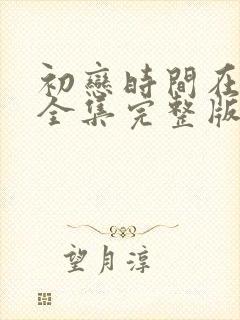 初戀時間在
全集完整版
望月淳